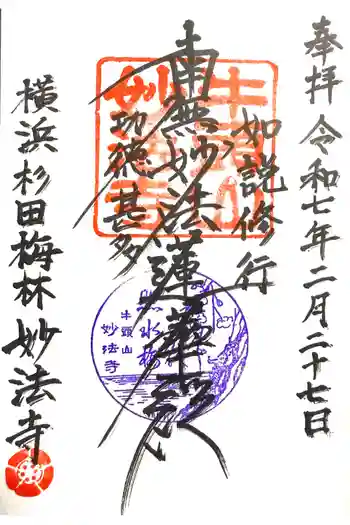 奉拝 令和七年二月二十七日
如説修行
南無妙法蓮華経
功徳甚多
横浜杉田梅林 妙法寺
牛頭山
妙法寺